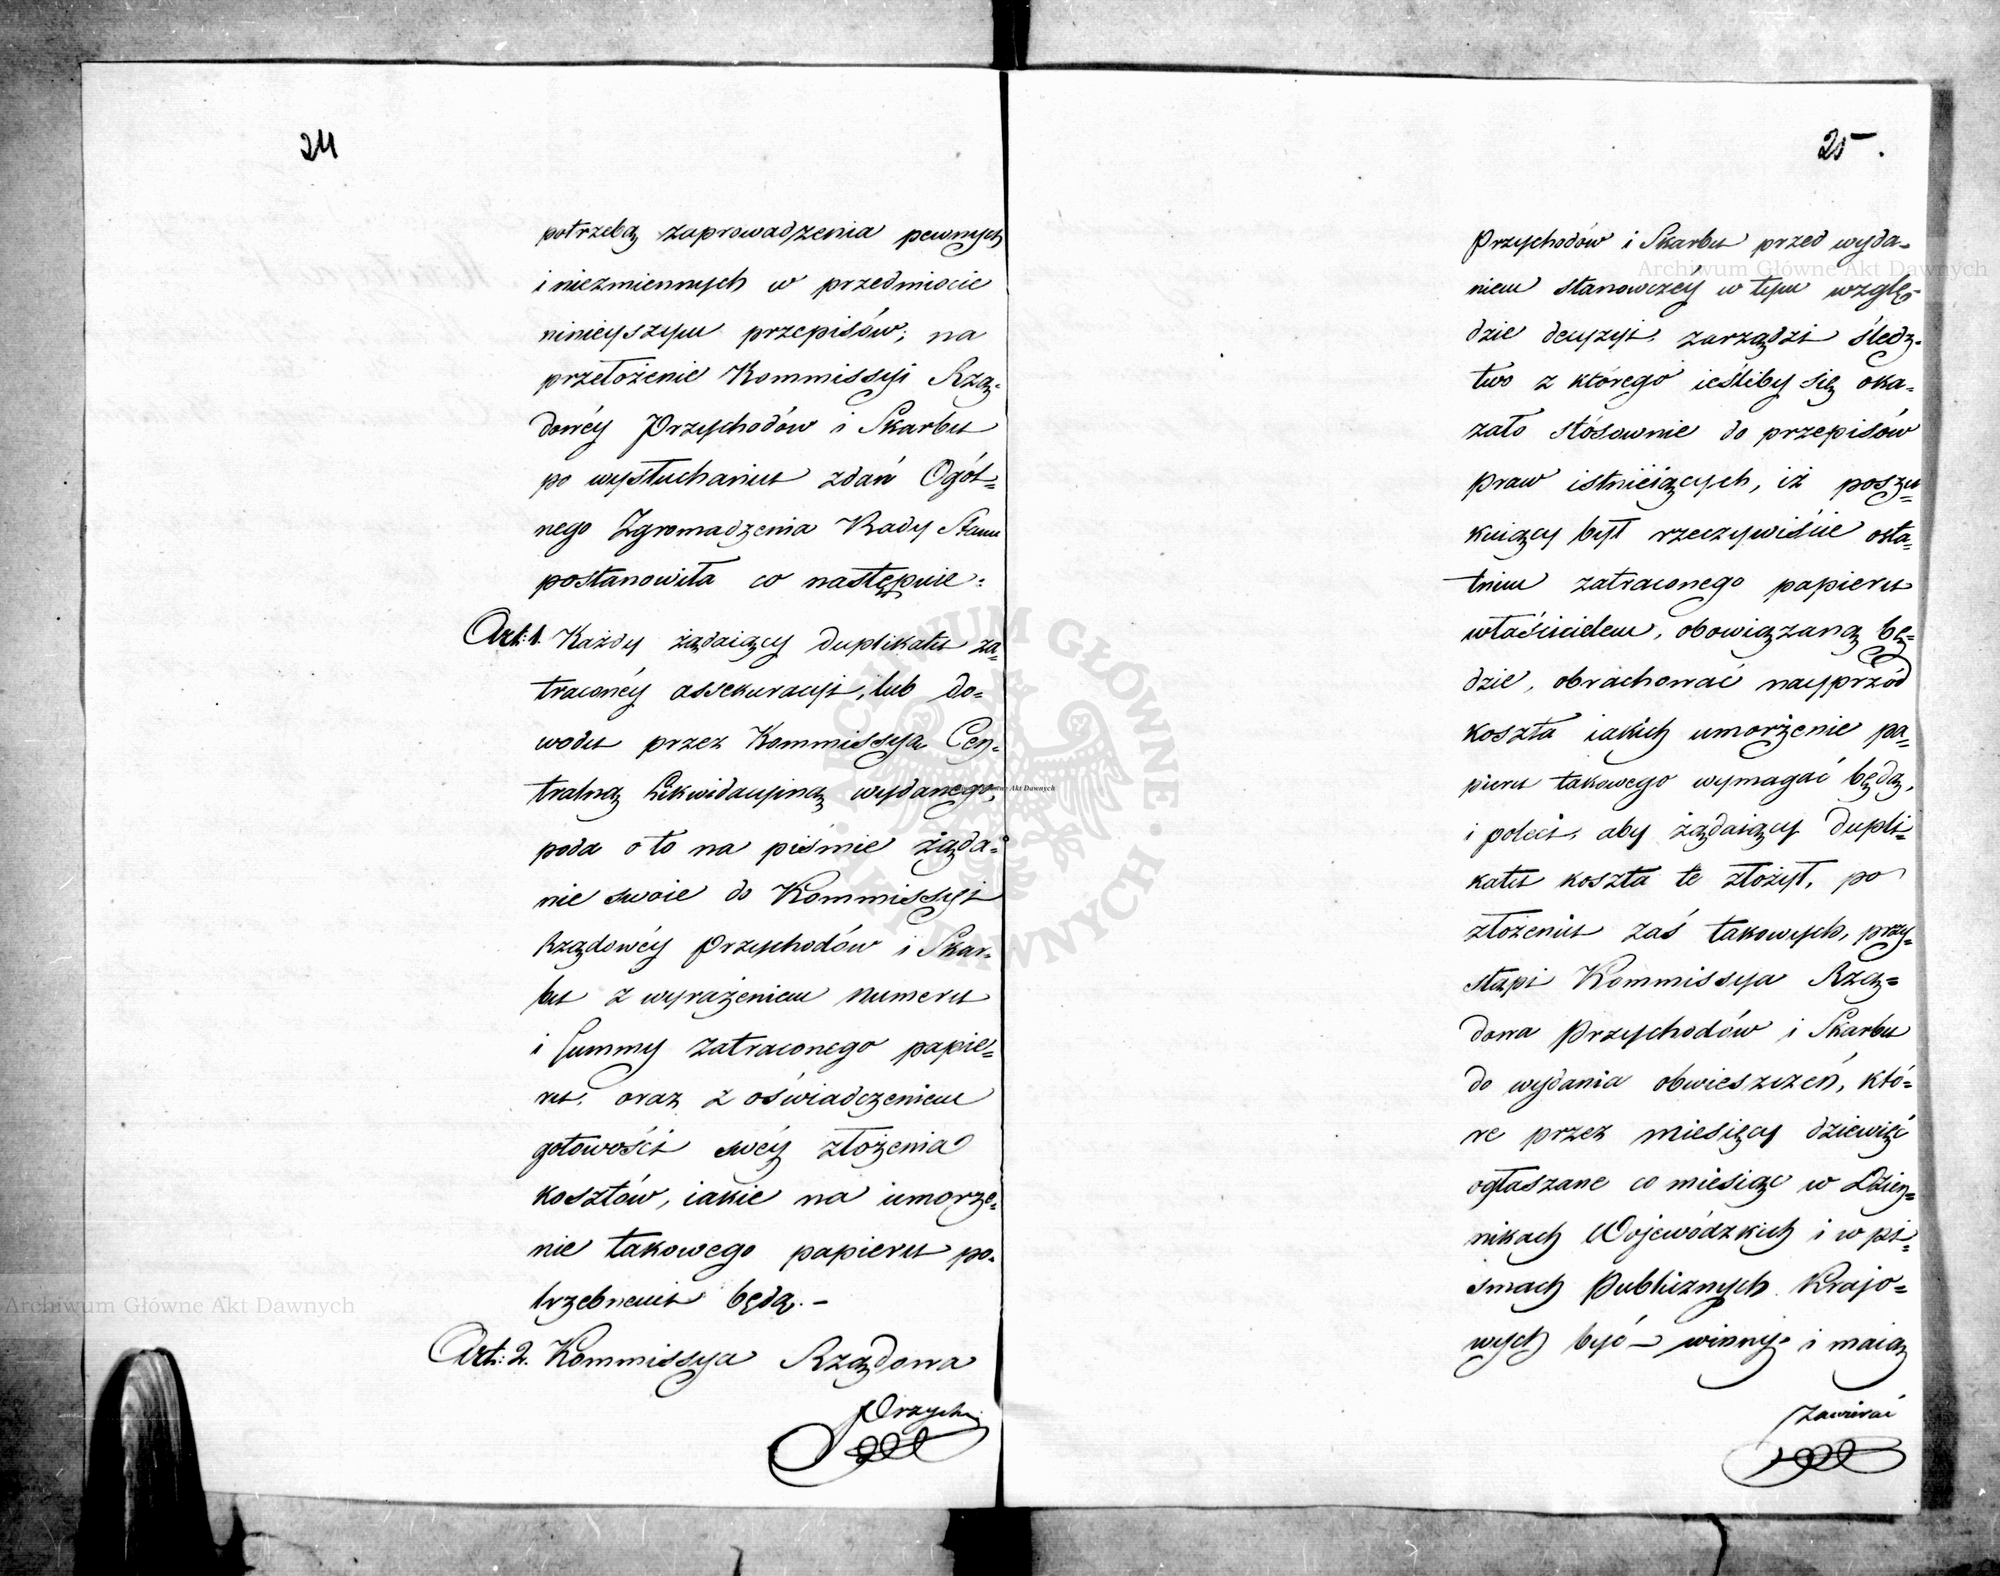 24
potrzebą zaprowadzenia pewnych
i niezmiennych w przedmiocie
ninieyszym przepisów; na
przełożenie Kommissyi Rzą=
dowéy Przychodów i Skarbu
po wysłuchaniu zdań Ogól=
nego Zgromadzenia Rady Stanu
postanowiła co następuie:
Art: 1. Każdy żądaiący duplikatu za=
traconéy assekuracyi, lub do=
wodu przez Kommissyą Cen=
tralną Likwidacyiną wydanego,
poda o to na piśmie żąda=
nie swoie do Kommissyi
Rządowéy Przychodów i Skar=
bu z wyrażeniem numeru
i Summy zatraconego papie=
ru, oraz z oświadczeniem
gotowości swéy złożenia
kosztów, iakie na umorze=
nie takowego papieru po=
trzebnemi będą. –
Art: 2. Kommissya Rządowa
Przych:
25.
Przychodów i Skarbu przed wyda=
niem stanowczéy w tym wzglę=
dzie decyzyi, zarządzi śledz=
two z którego ieśliby się oka=
zało stósownie do przepisów
praw istnieiących, iż poszu=
kuiący był rzeczywiście osta=
tnim zatraconego papieru
właścicielem, obowiązaną bę=
dzie, obrachować nayprzód
koszta iakich umorzenie pa=
pieru takowego wymagać będą,
i poleci, aby żądaiący dupli=
katu koszta te złożył, po
złożeniu zaś takowych, przy=
stąpi Kommissya Rzą=
dowa Przychodów i Skarbu
do wydania obwieszczeń, któ=
re przez miesięcy dziewięć
ogłaszane co miesiąc w Dzien=
nikach Wojewódzkich i w pi=
smach Publicznych Krajo=
wych być – winny, i maią
zawierać
Archiwum Główne Akt Dawnych
Archiwum Główne Akt Dawnych
Archiwum Główne Akt Dawnych
ARCHIWUM GŁÓWNE AKT DAWNYCH